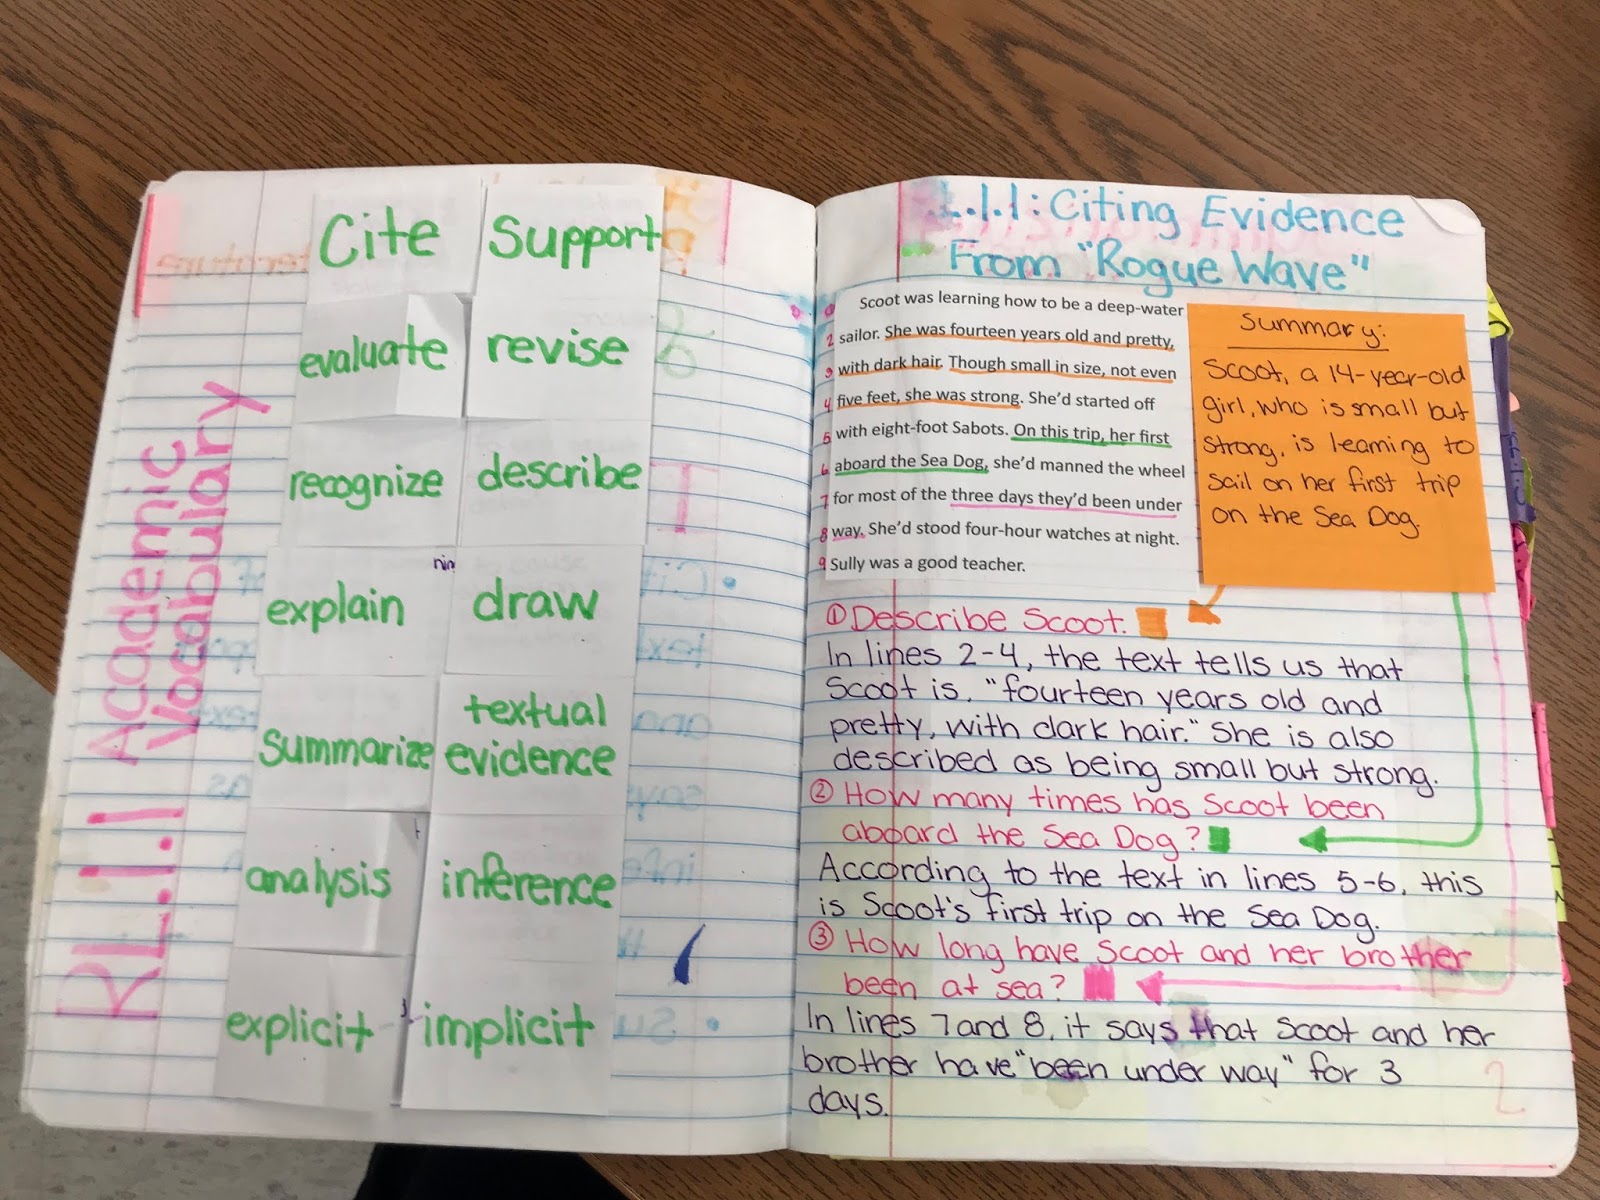 RL.1.1 Academic
Vocabulary
Cite Support
evaluate revise
recognize describe
explain draw
Summarize textual
evidence
analysis inference
explicit implicit
L.1.1: Citing Evidence
From "Rogue Wave"
1 Scoot was learning how to be a deep-water
2 sailor. She was fourteen years old and pretty,
3 with dark hair. Though small in size, not even
4 five feet, she was strong. She'd started off
5 with eight-foot Sabots. On this trip, her first
6 aboard the Sea Dog, she'd manned the wheel
7 for most of the three days they'd been under
8 way. She'd stood four-hour watches at night.
9 Sully was a good teacher.
Summary:
Scoot, a 14-year-old
girl, who is small but
strong, is learning to
sail on her first trip
on the Sea Dog.
① Describe Scoot.
In lines 2-4, the text tells us that
Scoot is, "fourteen years old and
pretty, with dark hair." She is also
described as being small but strong.
② How many times has Scoot been
aboard the Sea Dog?
According to the text in lines 5-6, this
is Scoot's first trip on the Sea Dog.
③ How long have Scoot and her brother
been at sea?
In lines 7 and 8, it says that Scoot and her
brother have "been under way" for 3
days.
2